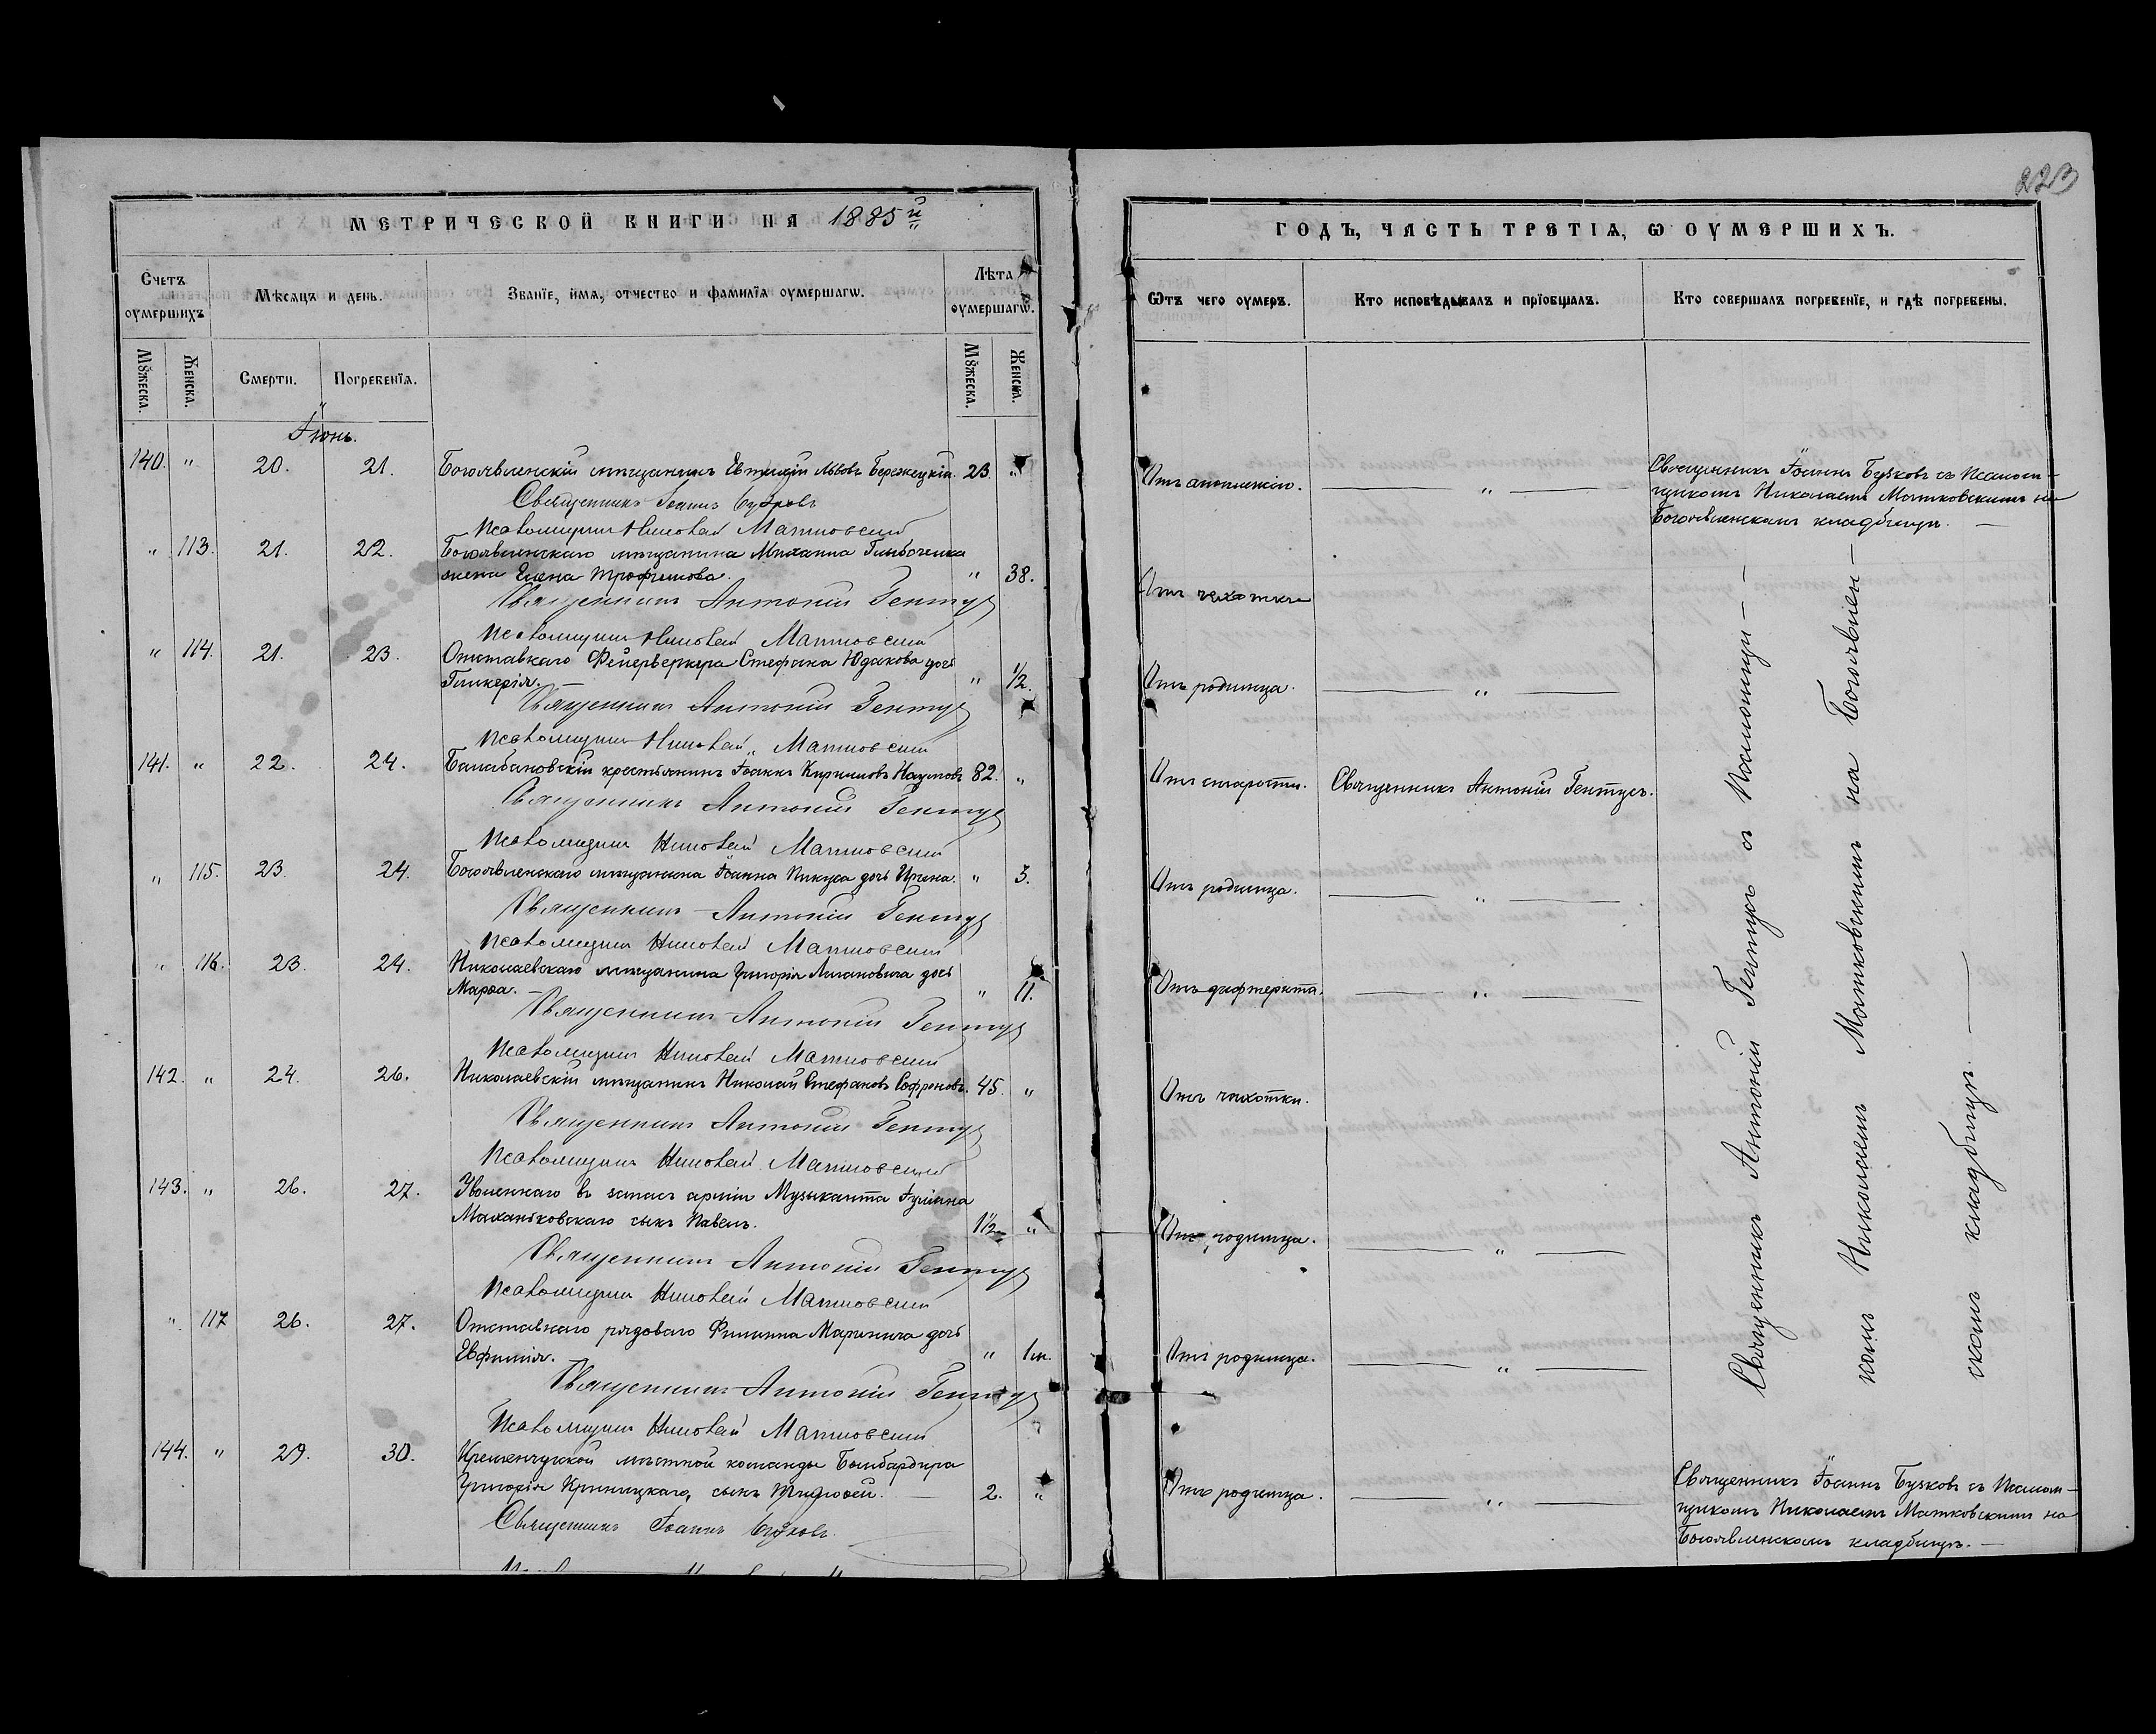 223
МЕТРИЧЕСКОЙ КНИГИ НА 1885й
ГОДЪ, ЧАСТЬ ТРЕТІѦ, Ѡ ОУМЕРШИХЪ.
Счетъ оумершихъ
Мѣсяцъ и день.
Званїе, имѧ, отчество и фамилїѧ оумершагѡ.
Лѣта оумершагѡ.
Ѿтъ чего оумеръ.
Кто исповѣдывалъ и прїобщалъ.
Кто совершалъ погребенїе, и гдѣ погребены.
Мꙋжеска.
Женска.
Смерти.
Погребенїѧ.
Мꙋжеска.
Женска.
Іюнь.
140. " 20. 21. Богоявленскій мѣщанинъ Евтихій Львовъ Бережецкій. 23. "
Отъ апоплексіи. — " —
Священникъ Іоаннъ Бучковъ съ Псаломщикомъ Николаемъ Матковскимъ на
Богоявленскомъ кладбищѣ. —
Священникъ Іоаннъ Бучковъ
Псаломщикъ Николай Матковскій
" 113. 21. 22. Богоявленскаго мѣщанина Михаила
жена Елена Трофимова. " 38.
Отъ чахотки
Священникъ Антоній Гентуръ
Псаломщикъ Николай Матковскій
" 114. 21. 23. Отставнаго Фейерверкера Стефана Юдакова дочь
Гликерія. " 1/2.
Отъ родимца. — " —
Священникъ Антоній Гентуръ
Псаломщикъ Николай Матковскій
141. " 22. 24. Балабановскій крестьянинъ Іоаннъ Кирилловъ Наумовъ 82. "
Отъ старости. Священникъ Антоній Гентуръ.
Священникъ Антоній Гентуръ
Псаломщикъ Николай Матковскій
" 115. 23. 24. Богоявленскаго мѣщанина Іоанна Пикуса дочь Ирина. " 3.
Отъ родимца. — " —
Священникъ Антоній Гентуръ
Псаломщикъ Николай Матковскій
" 116. 23. 24. Николаевскаго мѣщанина Григорія дочь
Марѳа. — " 11.
Отъ дифтерита. — " —
Священникъ Антоній Гентуръ
Псаломщикъ Николай Матковскій
142. " 24. 26. Николаевскій мѣщанинъ Николай Стефановъ Софроновъ. 45. "
Отъ чахотки.
Священникъ Антоній Гентуръ
Псаломщикъ Николай Матковскій
143. " 26. 27. Уволеннаго въ запасъ арміи Музыканта Іуліана
Маханьковскаго сынъ Павелъ. 1 1/2 "
Отъ родимца. — " —
Священникъ Антоній Гентуръ
Псаломщикъ Николай Матковскій
" 117 26. 27. Отставнаго рядоваго Филиппа Маринича дочь
Евфимія. " 1м.
Отъ родимца. — " —
Священникъ Антоній Гентуръ
Псаломщикъ Николай Матковскій
Священникъ Антоній Гентуръ съ Псаломщи—
комъ Николаемъ Матковскимъ на Богоявлен—
скомъ кладбищѣ. —
144. " 29. 30. Кременчугской мѣстной команды Бомбардира
Григорія Криницкаго, сынъ Тимоѳей. — 2. "
Отъ родимца. — " —
Священникъ Іоаннъ Бучковъ съ Псалом—
щикомъ Николаемъ Матковскимъ на
Богоявленскомъ кладбищѣ. —
Священникъ Іоаннъ Бучковъ.